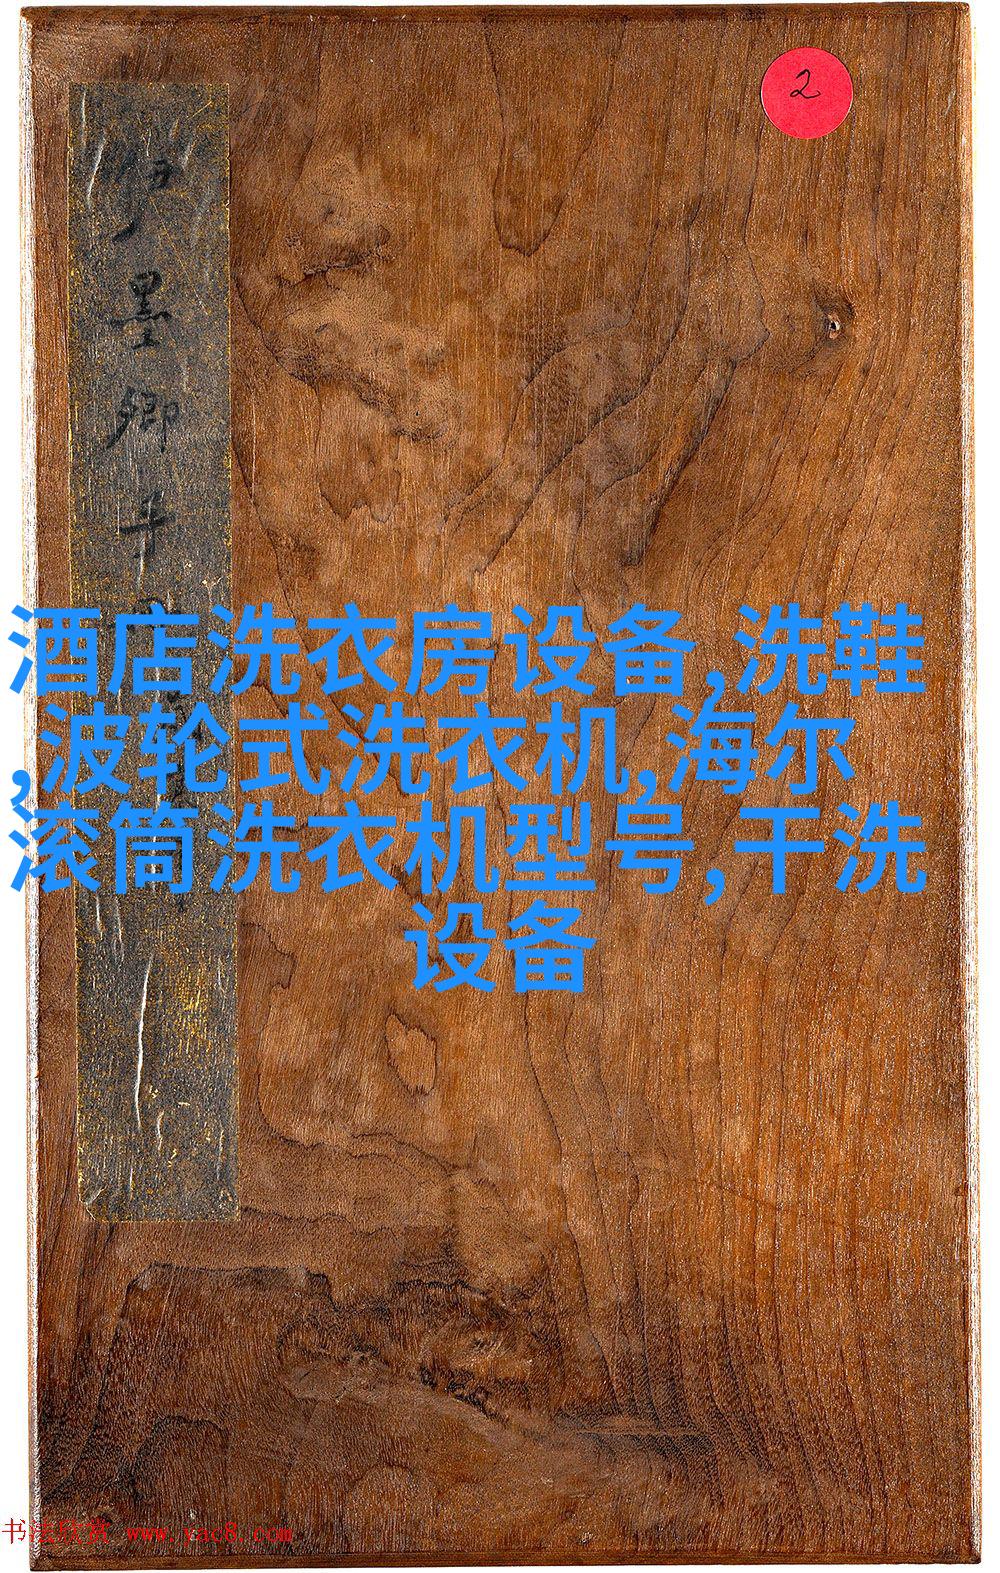 2
墨卿手
酒店洗衣房设备,洗鞋
,波轮式洗衣机,海尔
滚筒洗衣机型号,干洗
设备
书法欣赏 www.yac8.com